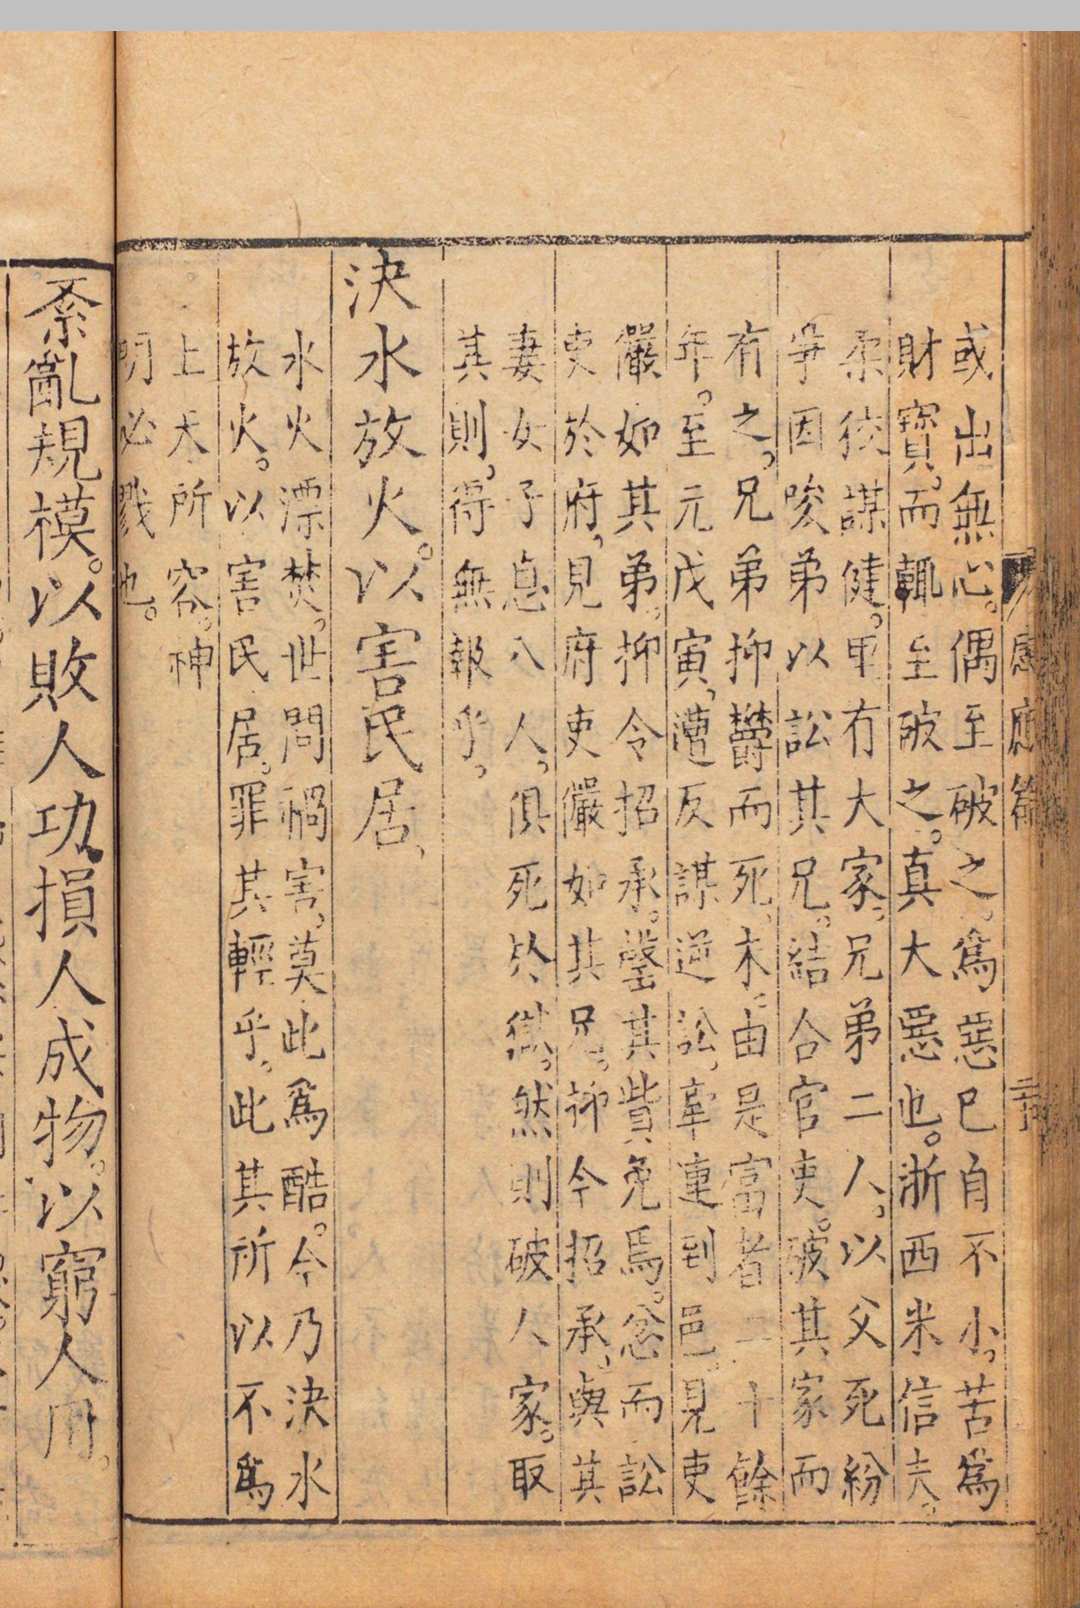 感應篇
或出無心。偶至破之。爲惡已自不小。苦爲
財寶。而輒至破之。真大惡也。浙西米信夫。
柔狡謀健。甲有大家。兄弟二人。以父死紛
爭因唆弟以訟其兄。結合官吏。破其家而
有之。兄弟抑鬱而死。未。由是富者二十餘
年。至元戊寅。遭反謀逆訟。牽連到邑。見吏
儼如其弟。抑令招承。罄其貲免焉。忿而訟
吏於府。見府吏儼如其兄。抑令招承。與其
妻女子息八人。俱死於獄。然則破人家。取
其財。得無報乎。
決水放火。以害民居。
水火漂焚。世間禍害。莫此爲酷。今乃決水
放火。以害民居。罪其輕乎。此其所以不爲
上天所容。神
明必戮也。
紊亂規模。以敗人功。損人成物。以窮人用。